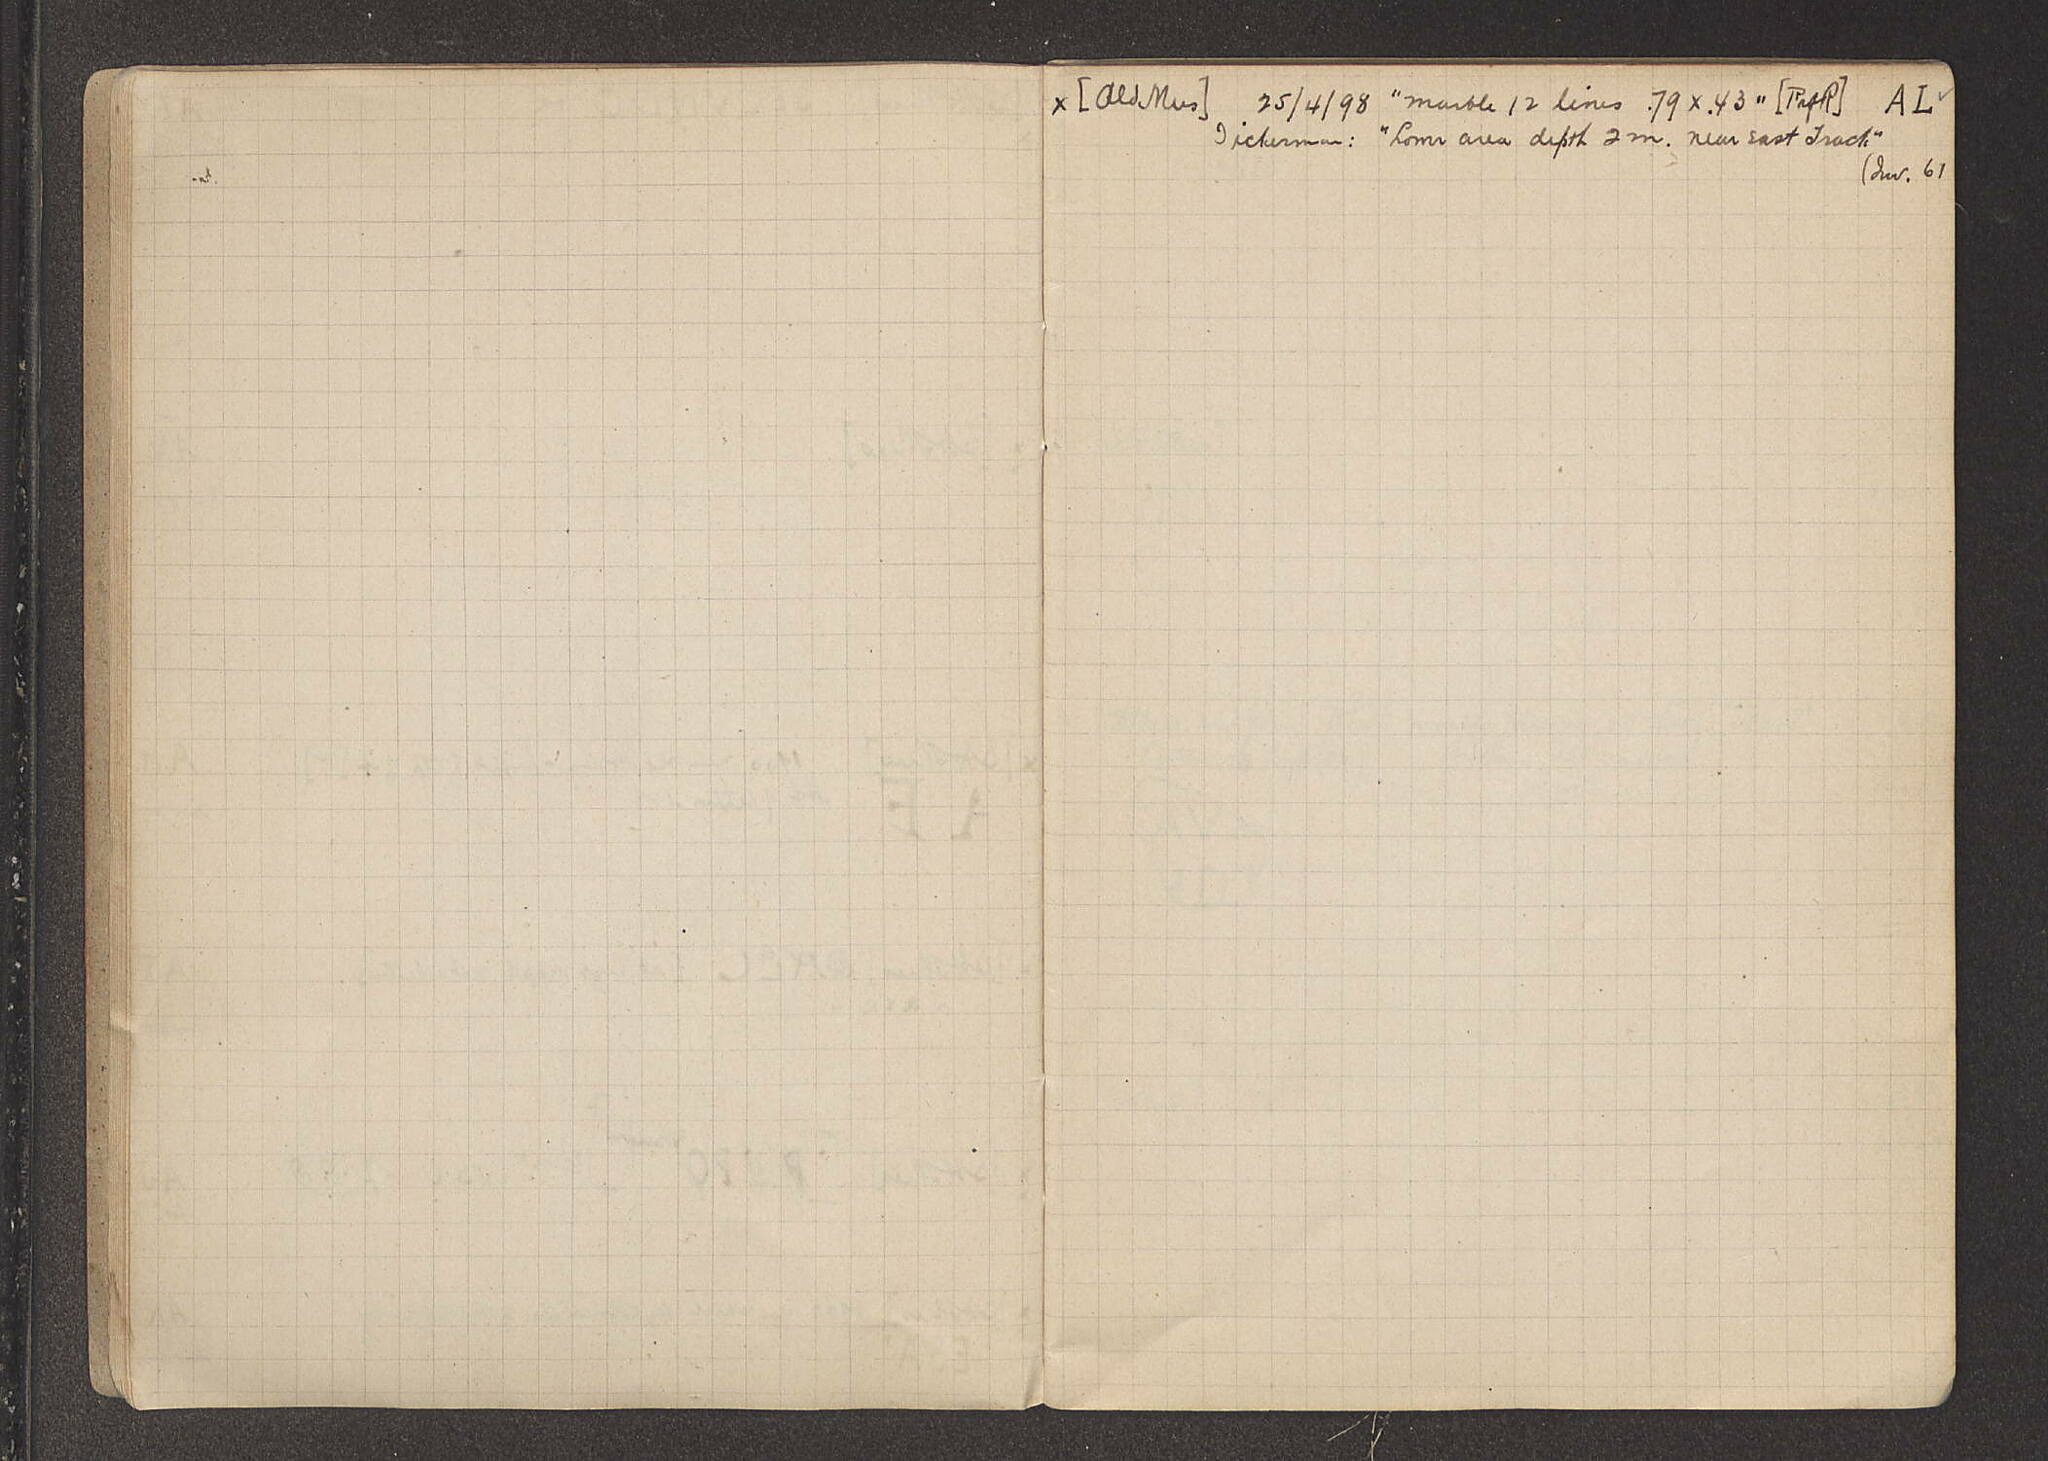 x [Old Mus] 25/4/98 "marble 12 lines .79 x .43" [Prof R] AL ✓
Dickerman: "Lower area depth 2 m. near East Track"
(Inv. 61